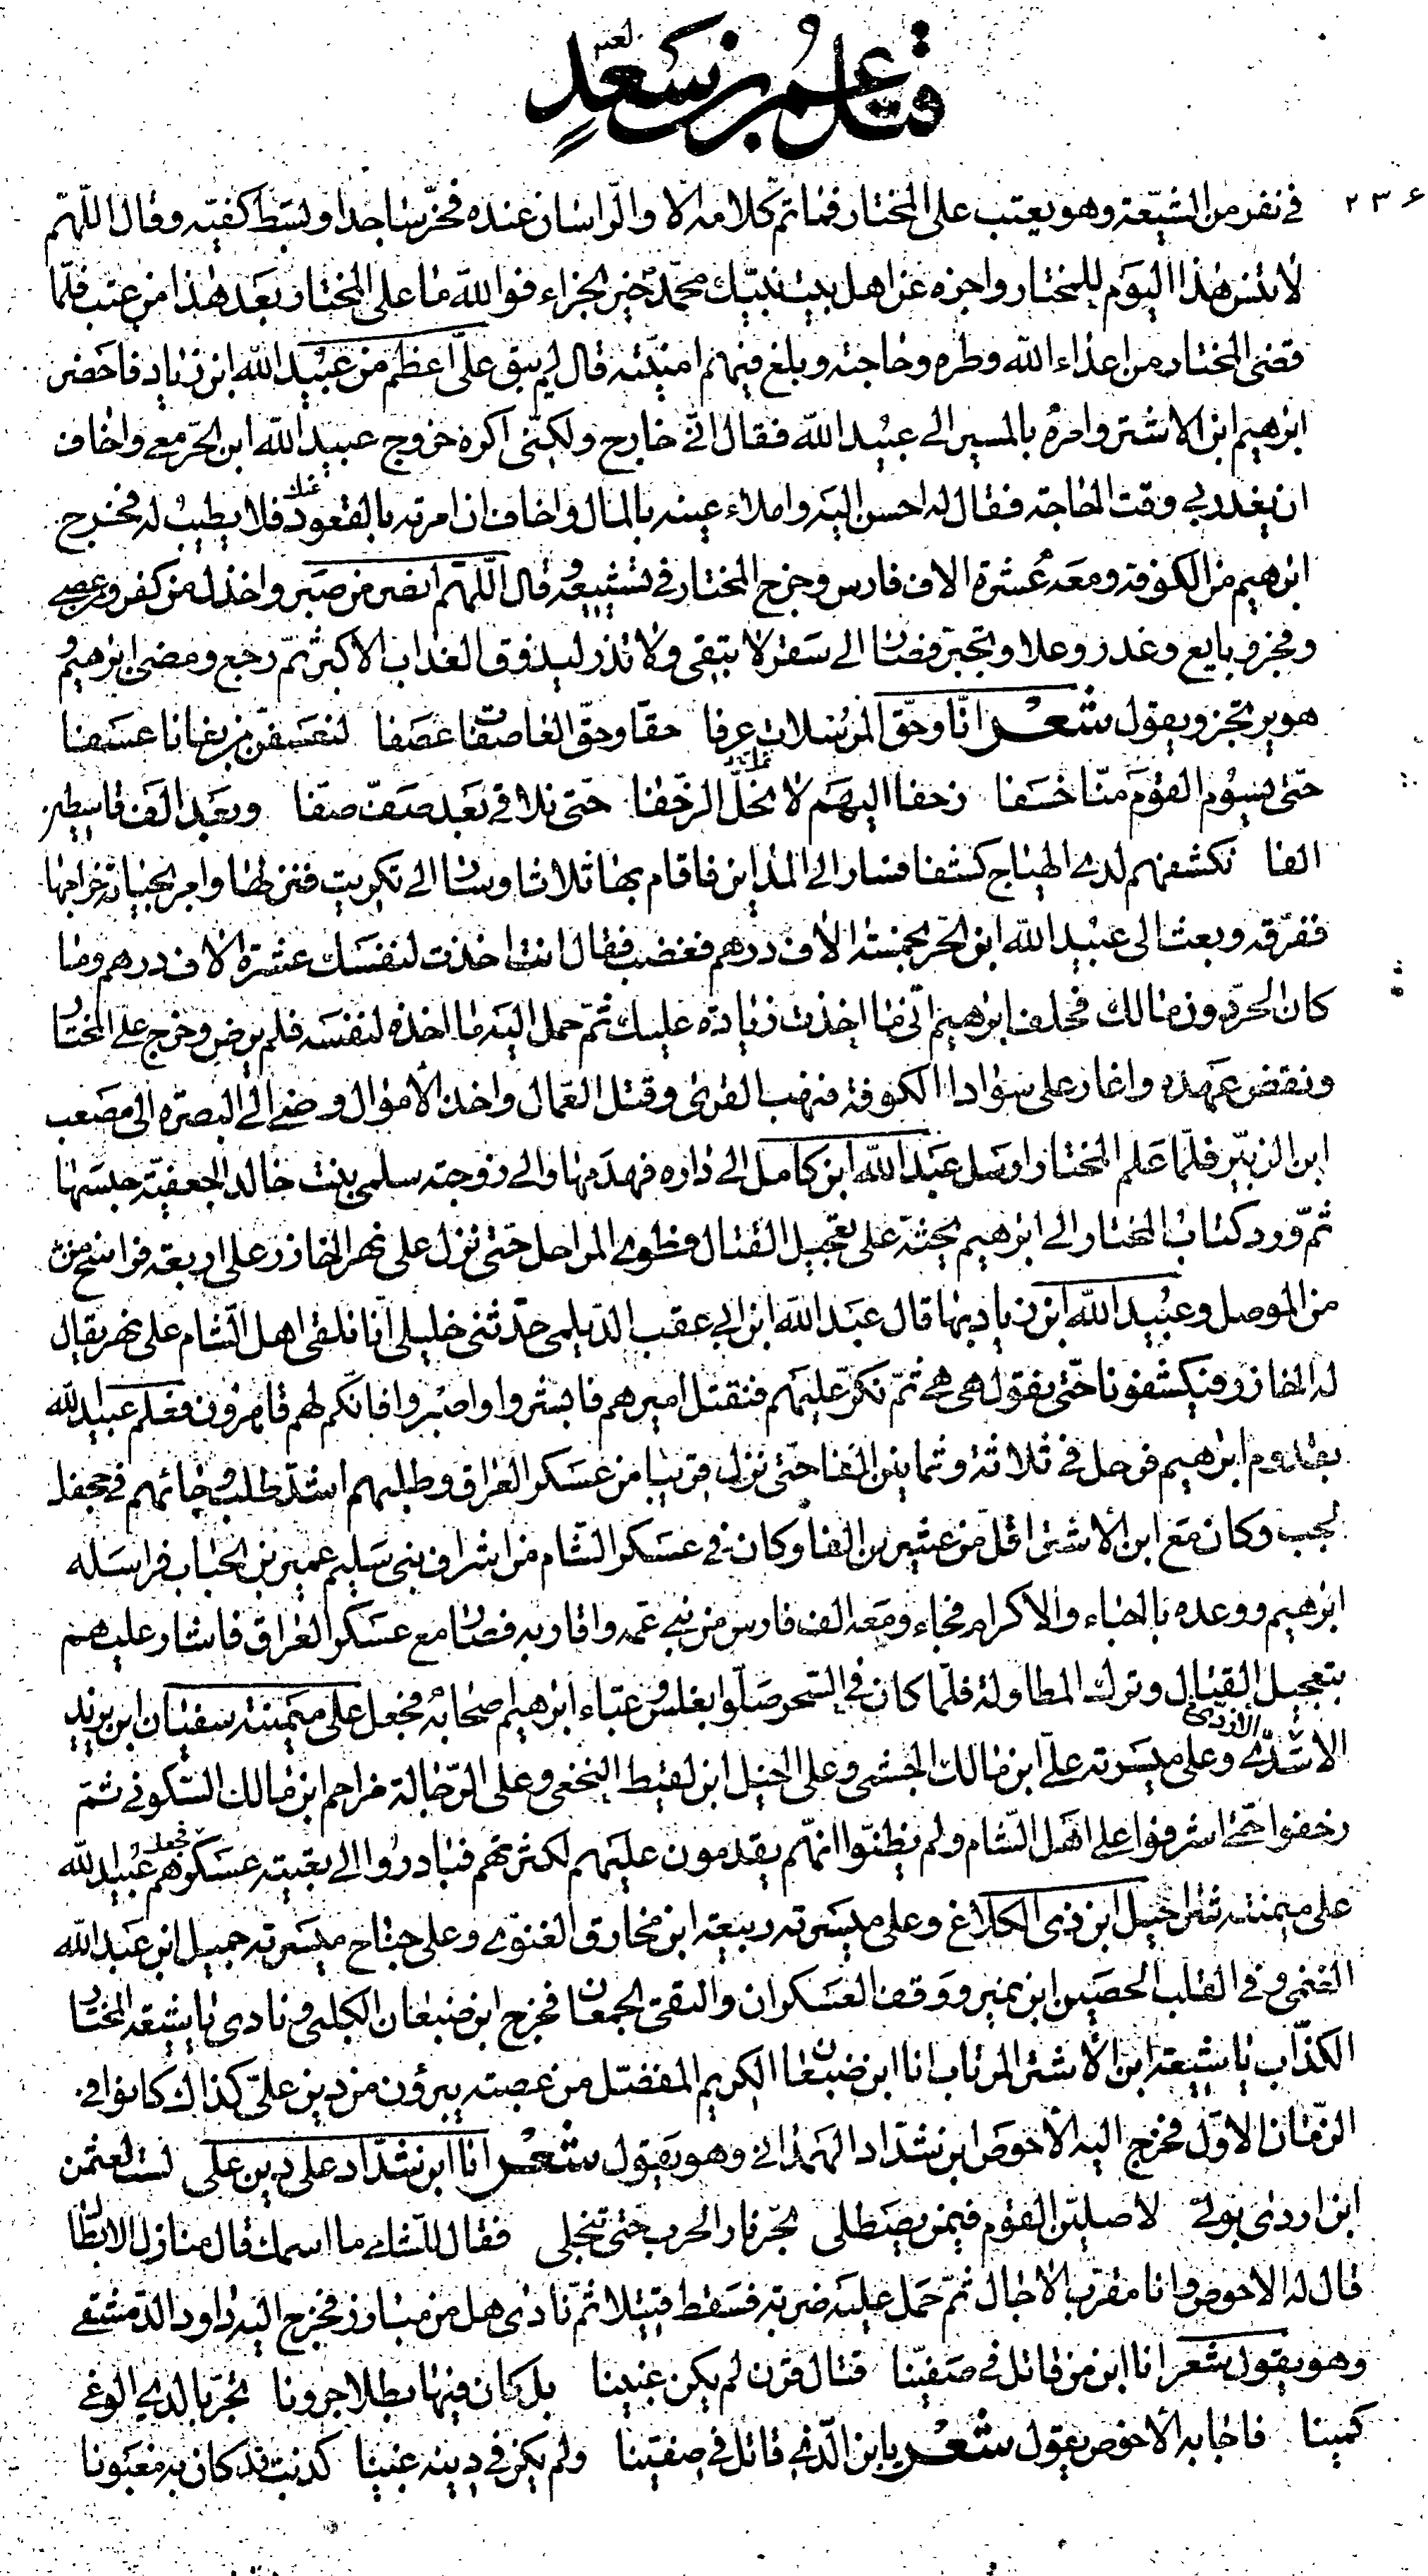 قتل عمر بن سعد لعنه
٢٣۶
في نفر من الشيعة وهو يعتب على المختار فما تم كلامه الا والراسان عنده فخر ساجدا وبسط كفيه وقال اللهم
لا تنس هذا اليوم للمختار واجزه عن اهل بيت نبيك محمد خير الجزاء فو الله ما على المختار بعد هذا من عتب فلما
قضى المختار من اعداء الله وطره وحاجته وبلغ فيهم امنيته قال لم يبق على اعظم من عبيد الله ابن زياد فاحضر
ابرهيم ابن الاشتر وامره بالمسير الى عبيد الله فقال اني خارج ولكني اكره خروج عبيد الله ابن الحر معي واخاف
ان يغدر بي وقت الحاجة فقال له احسن اليه واملاء عينه بالمال واخاف ان امرته بالقعود عنك فلا يطيب له فخرج
ابرهيم من الكوفة ومعه عشرة الاف فارس وخرج المختار في تشييعه وقال اللهم انصر من صبر واخذل من كفر ومن عصى
وفجر وبايع وغدر وعلا وتجبر فصار الى سقر لا تبقى ولا تذر ليذوق العذاب الاكبر ثم رجع ومضى ابرهيم و
هو يرتجز ويقول شعر انا وحق المرسلات عرفا حقا وحق العاصفات عصفا لنعسفن من بغانا عسفا
حتى يسوم القوم منا خسفا زحفا اليهم لا نمل الزحفا حتى نلاقي بعد صف صفا وبعد الف قاسطين
الفا نكشفهم لدى الهياج كشفا فسار الى المداين فاقام بها ثلاثا وسار الى تكريت فنزلها وامر بجباية خراجها
ففرقه وبعث الى عبيد الله ابن الحر بخمسة الاف درهم فغضب فقال انت اخذت لنفسك عشرة الاف درهم وما
كان الحر دون مالك فحلف ابرهيم اني ما اخذت زيادة عليك ثم حمل اليه ما اخذه لنفسه فلم يرض وخرج على المختار
ونقض عهده واغار على سواد الكوفة فنهب القرى وقتل العمال واخذ الأموال ومضى الى البصره الى مصعب
ابن الزبير فلما علم المختار ارسل عبد الله ابن كامل الى داره فهدمها والى زوجته سلمى بنت خالد الجعفية حبسها
ثم ورد كتاب المختار الى ابرهيم يحثه على تعجيل القتال فطوى المراحل حتى نزل على نهر الخازر على اربعة فراسخ من
من الموصل وعبيد الله ابن زياد بها قال عبد الله ابن ابي عقب الديلمي حدثني خليلي انا نلقى اهل الشام على نهر يقال
له الخازر فيكشفونا حتى نقول هى هى ثم نكر عليهم فنقتل اميرهم فابشروا واصبروا فانكم لهم قاهرون فعلم عبيد لله
بقدوم ابرهيم فرحل في ثلاثة وثمانين الفا حتى نزل قريبا من عسكر العراق وطلبهم اشد طلب وجائهم في جحفل
لجب وكان مع ابن الأشتر اقل من عشرين الفا وكان في عسكر الشام من اشراف بني سليم عمير بن الحباب فراسله
ابرهيم ووعده بالحباء والاكرام فجاء ومعه الف فارس من بني عمه واقاربه فصار مع عسكر العراق فاشار عليهم
بتعجيل القتال وترك المطاولة فلما كان في السحر صلوا بغلس وعباء ابرهيم اصحابه فجعل على ميمنته سفيان ابن يزيد
الاسدي الازدي وعلى ميسرته على ابن مالك الجشمي وعلى الخيل ابن لقيط النخعي وعلى الرجالة مزاحم ابن مالك السكوني ثم
زحفوا حتى اشرفوا على اهل الشام ولم يظنوا انهم يقدمون عليهم لكثرتهم فبادروا الى بقية عسكرهم فجعل عبيد لله
على ميمنته شراحيل ابن ذي الكلاع وعلى ميسرته ربيعة ابن مخارق الغنوي وعلى جناح ميسرته جميل ابن عبد الله
الغنمي وفي القلب الحصين ابن نمير ووقف العسكران والتقى الجمعان فخرج ابن ضبعان الكلبي ونادى يا شيعة المختار
الكذاب يا شيعة ابن الأشتر المرتاب انا ابن ضبعان الكريم المفضل من عصبة يبرؤن من دين علي كذاك كانوا في
الزمان الاول فخرج اليه الأحوص ابن شداد الهمداني وهو يقول شعر انا ابن شداد على دين علي لست لعثمن
ابن اروى بولي لأصلين القوم فيمن يصطلي بحر نار الحرب حتى تنجلي فقال للشامي ما اسمك قال منازل الابطال
قال له الاحوص وانا مقرب الاجال ثم حمل عليه ضربه فسقط قتيلا ثم نادى هل من مبارز فخرج اليه داود الدمشقي
وهو يقول شعر انا ابن من قاتل في صفينا قتال قرن لم يكن غبينا بل كان فيها بطلا جرونا مجربا لدى الوغى
كمينا فاجابه الأحوص يقول شعر يا ابن الذي قاتل في صفينا ولم يكن في دينه غبينا كذبت قد كان به مغبونا